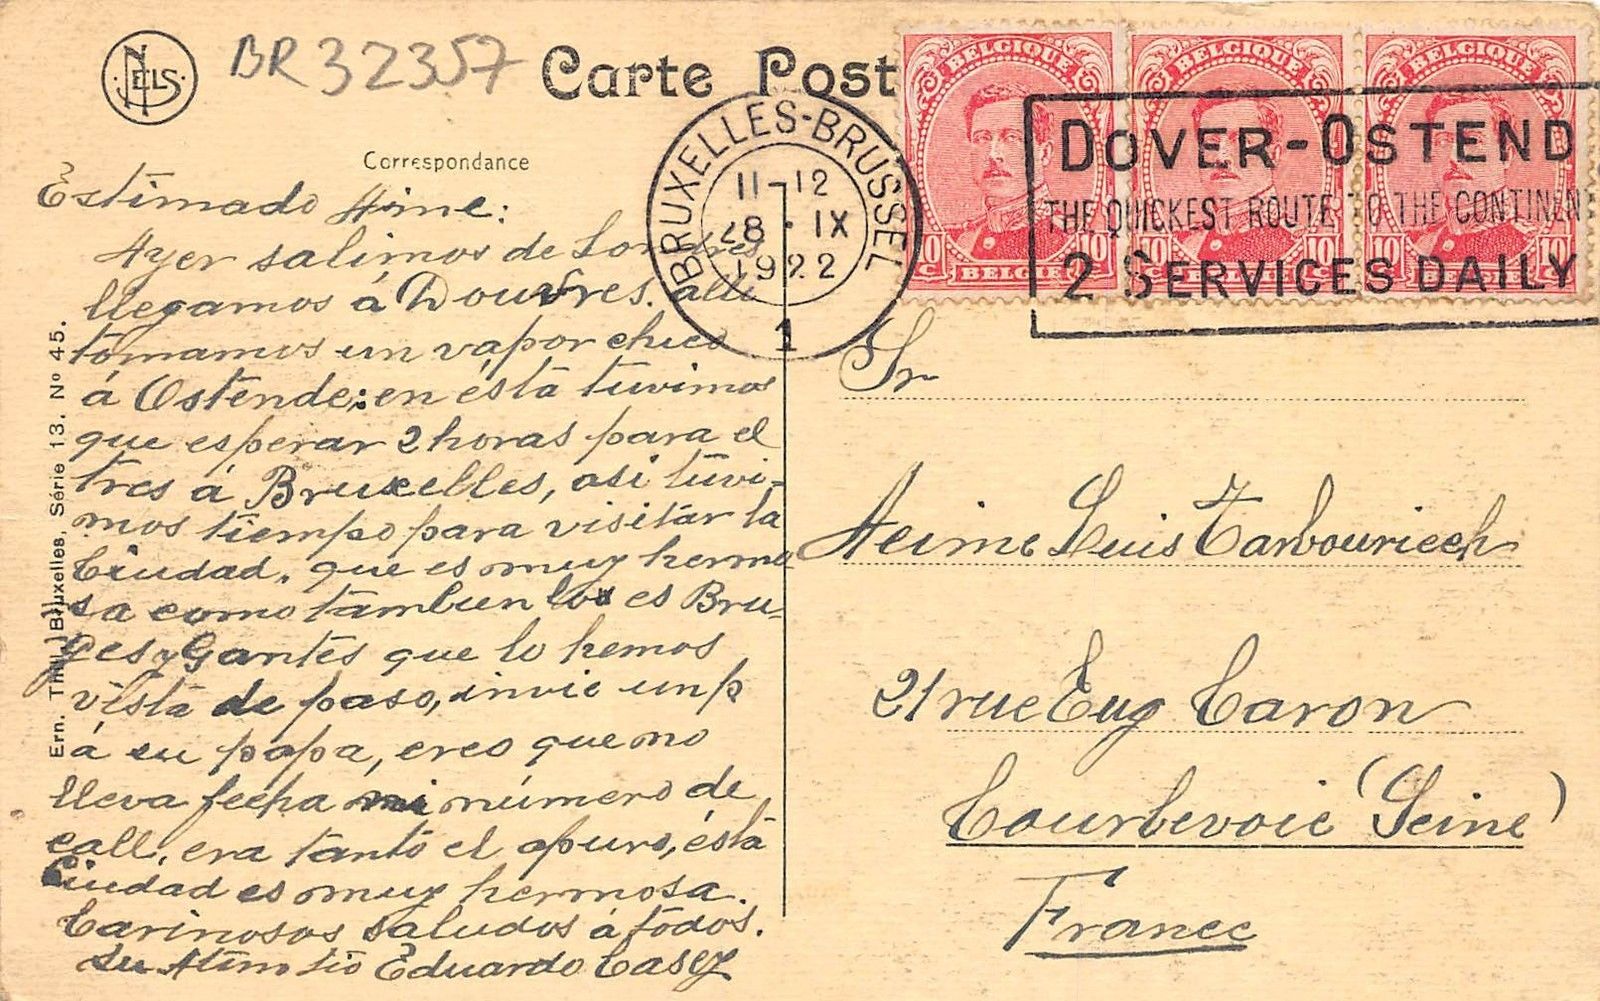 NELS
BR 32357
Carte Post
Correspondance
BELGIQUE
BELGIQUE
BELGIQUE
10 c BELGIË 10 c
10 c
10
10 c
10
BRUXELLES-BRUSSEL
11-12
28 · IX
1922
1
DOVER-OSTEND
THE QUICKEST ROUTE TO THE CONTINENT
2 SERVICES DAILY
Estimado Aime:
Ayer salimos de Londres
llegamos á Douvres. alli
tomamos un vapor chico
á Ostende; en ésta tuvimos
que esperar 2 horas para el
tres á Bruxelles, asi tuvi-
mos tiempo para visitar la
Ciudad, que es muy hermo
sa como tambien los es Bru-
ges y Gantes que lo hemos
vista de paso, invie un p
á su papa, creo que no
lleva fecha ni número de
call, era tanto el apuro, ésta
Ciudad es muy hermosa.
Carinosos saludos á todos.
Su Eduardo Casey
Ern. Thill, Bruxelles, Série 13. No 45.
Sr
Aeime Luis Tarbouriech
21 rue Eug Caron
Courbevoie (Seine)
France